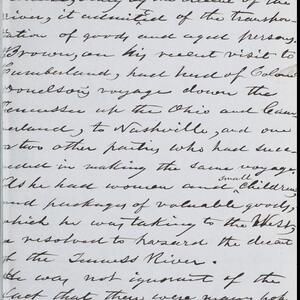 river, it admitted of the transpor-
tation of goods and aged persons.
Brown, on his recent visit to
Cumberland, had heard of Colone
Donelson's voyage down the
Tennessee up the Ohio and Cum
erland, to Nashville, and one
r two other parties who had suc
eeded in making the same voyage.
As he had women and small children,
and packages of valuable goods,
which he was taking to the West,
e resolved to hazard the descent
of the Tenness River.
He was not ignorant of the
fact that there were many hos